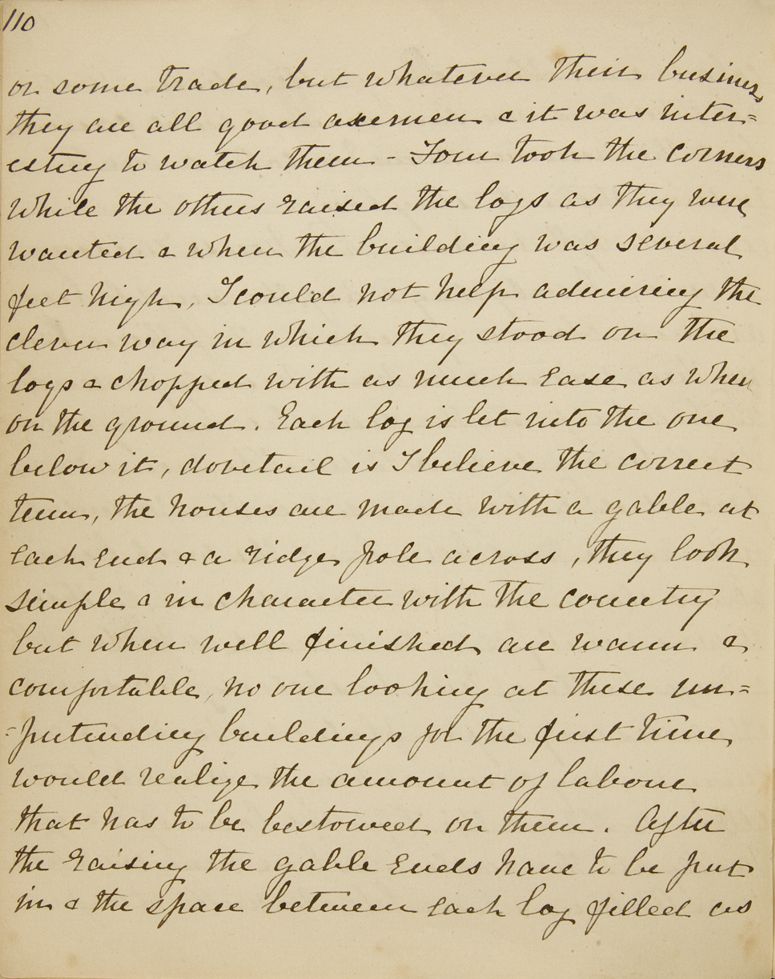 110
or some trade, but whatever their business
they are all good axemen & it was inter=
esting to watch them - Four took the corners
while the others raised the logs as they were
wanted & when the building was several
feet high, I could not help admiring the
clever way in which they stood on the
logs & chopped with as much ease as when
on the ground. Each log is let into the one
below it, dovetail is I believe the correct
term, the houses are made with a gable at
each end & a ridge pole across, they look
simple & in character with the country
but when well finished are warm &
comfortable, no one looking at these un=
=pretending buildings for the first time
would realize the amount of labour
that has to be bestowed on them. After
the raising the gable ends have to be put
in & the space between each log filled as